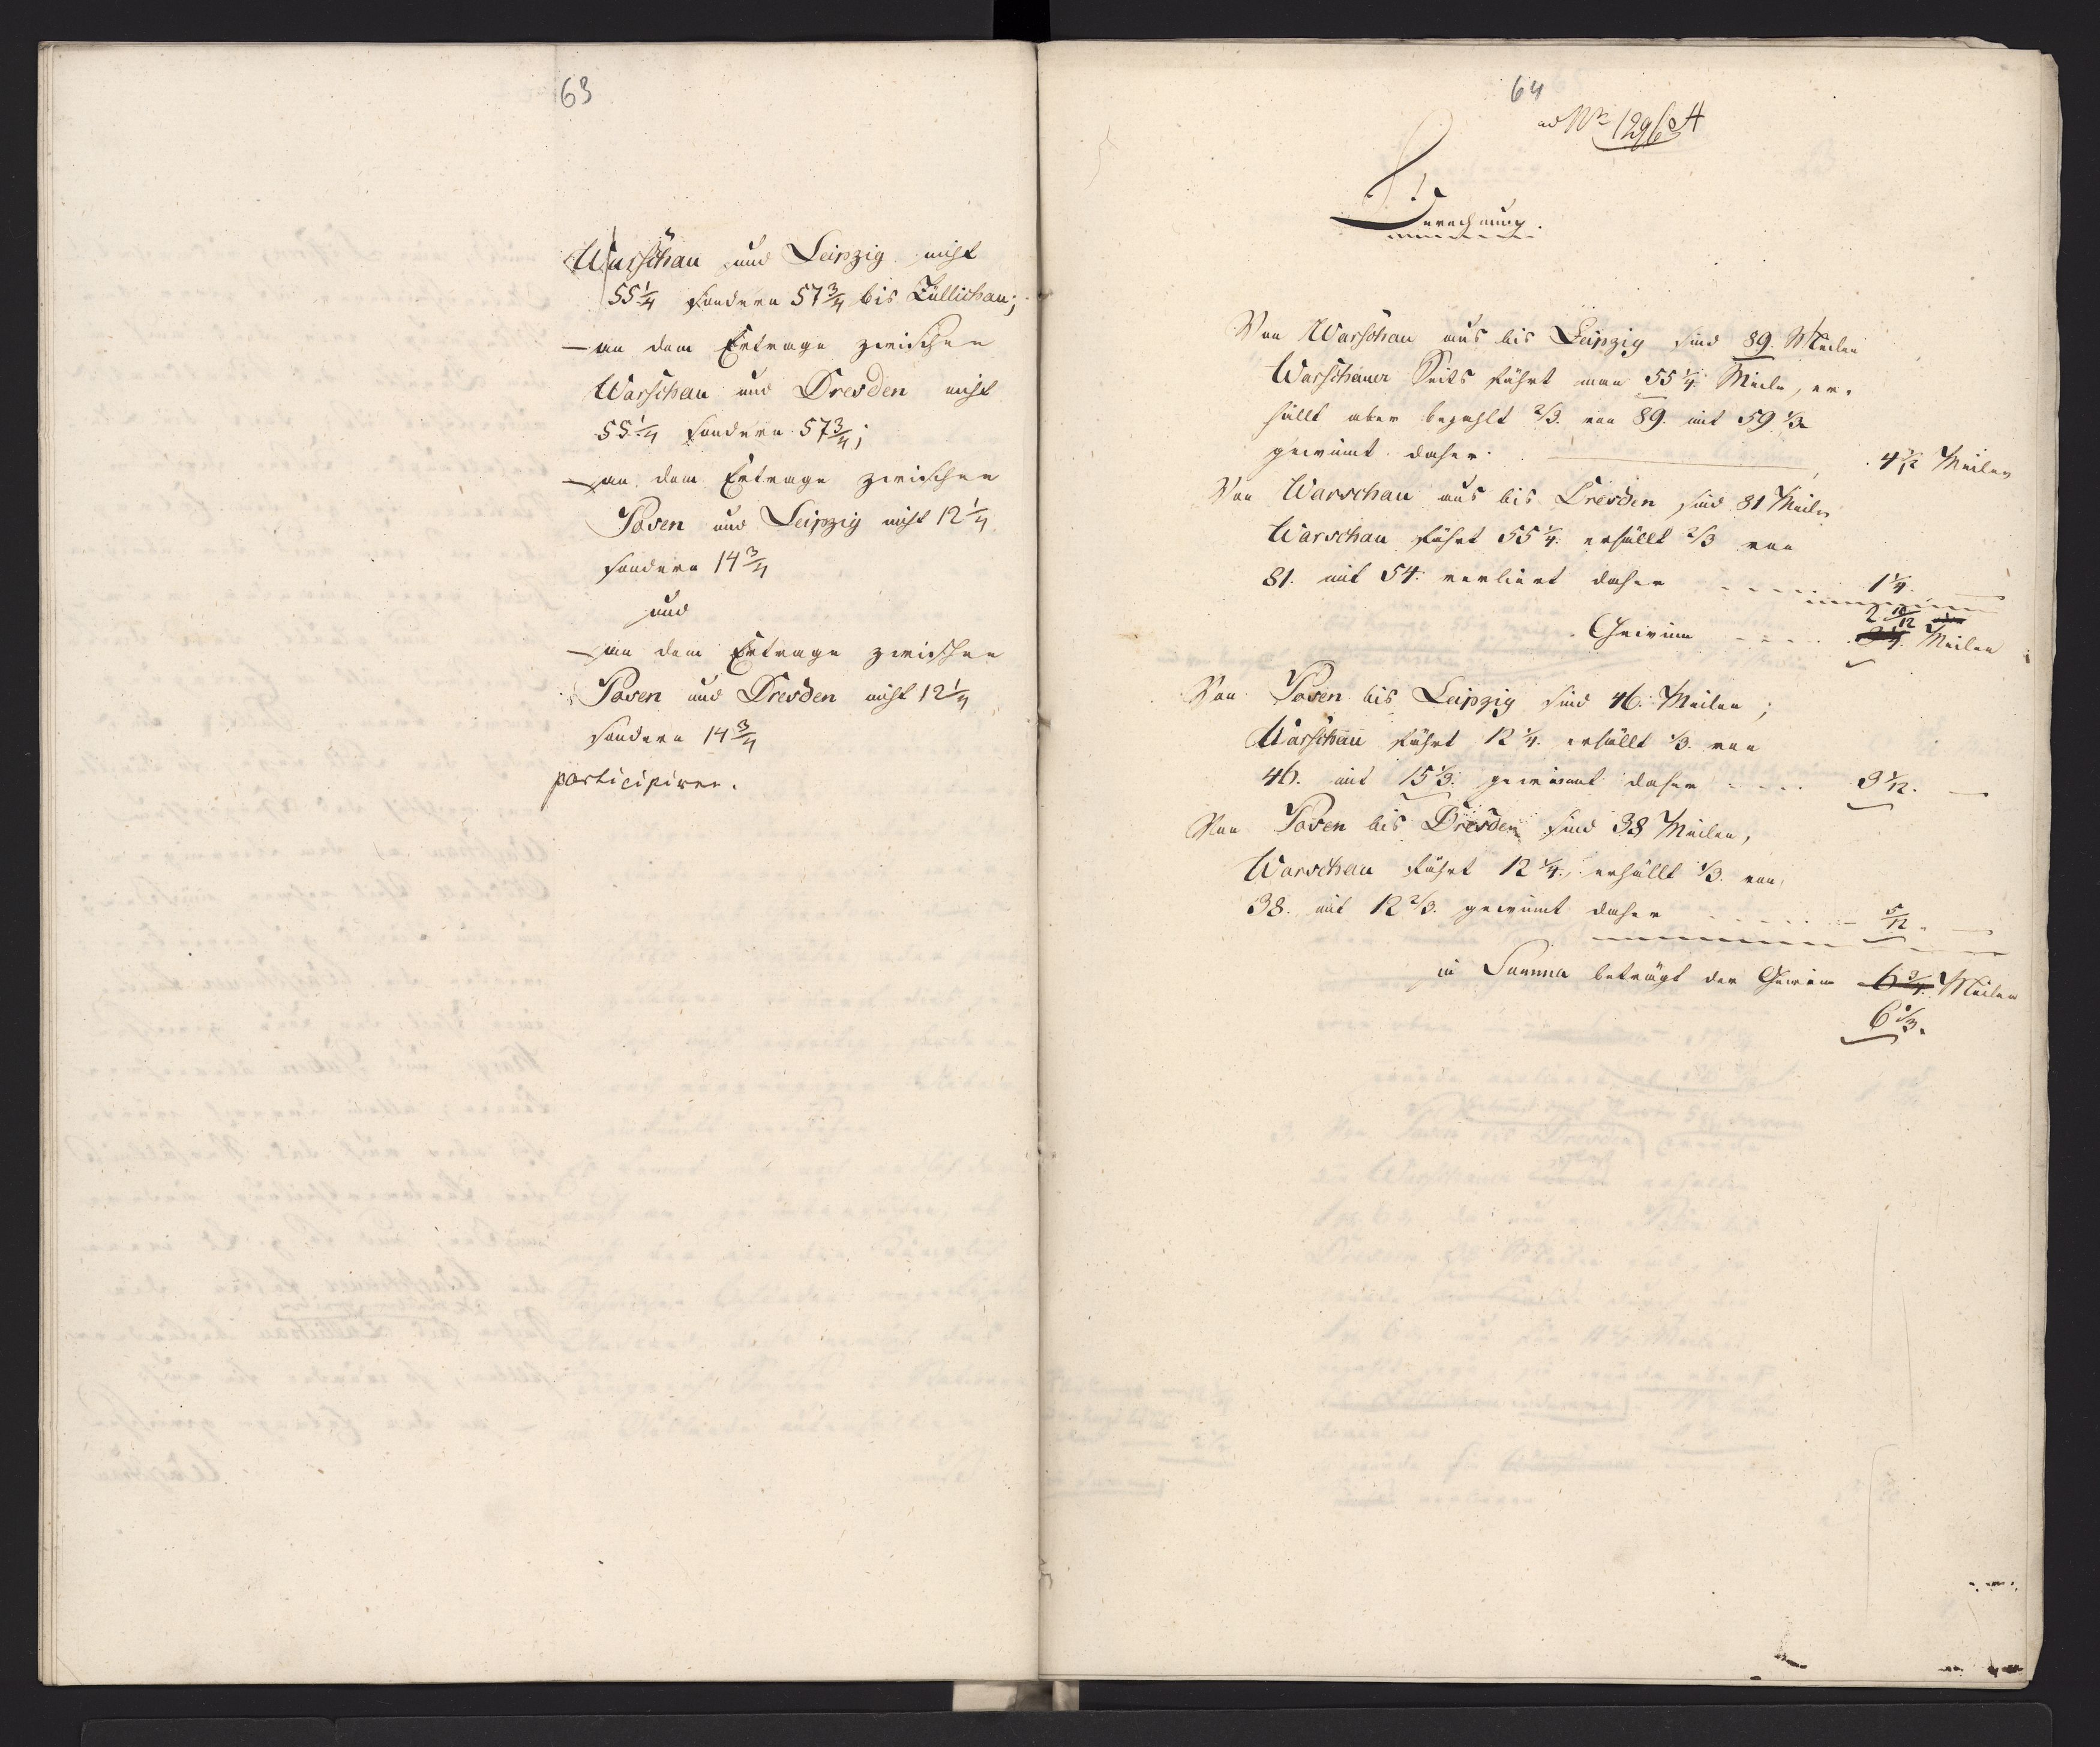 63
Warschau und Leipzig nicht
55 1/4 sondern 57 3/4 bis Züllichau;
— an dem Ertrage zwischen
Warschau und Dresden nicht
55 1/4 sondern 57 3/4;
— an dem Ertrage zwischen
Posen und Leipzig nicht 12 1/4
sondern 14 3/4
und
— an dem Ertrage zwischen
Posen und Dresden nicht 12 1/4
sondern 14 3/4
participiren.
64
ad Nr 1296 A
Berechnung.
Von Warschau aus bis Leipzig sind 89. Meilen
Warschauer Seits fährt man 55 1/4 Meile, er-
hällt aber bezahlt 2/3. von 89. mit 59 1/3
gewinnt daher 4 1/12 Meilen
Von Warschau aus bis Dresden sind 81 Meilen
Warschau fährt 55 1/4. erhällt 2/3 von
81. mit 54. verliert daher - - - - 1 1/4. —
2 10/12
Gewinn - - - - 3 1/4. Meilen
Von Posen bis Leipzig sind 46. Meilen;
Warschau fährt 12 1/4. erhällt 1/3. von
46. mit 15 1/3. gewinnt daher - - - - 3 1/12. —
Von Posen bis Dresden sind 38 Meilen,
Warschau fährt 12 1/4. erhällt 1/3. von
38. mit 12 2/3. gewinnt daher - - - - 5/12. —
in Summa beträgt der Gewinn 6 3/4. Meilen
6 1/3.